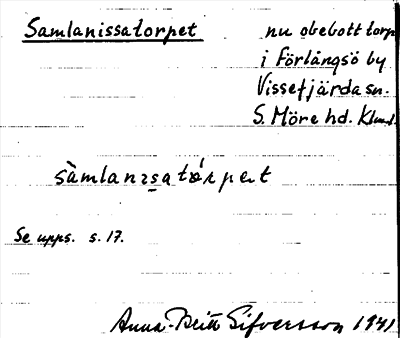 Samlanissatorpet nu obebott torp
i Förlångsö by
Vissefjärda sn.
S. Möre hd. Klm l.
sàmlanɪsatórpət
Se upps. s. 17.
Anna-Britt Sifversson 1941